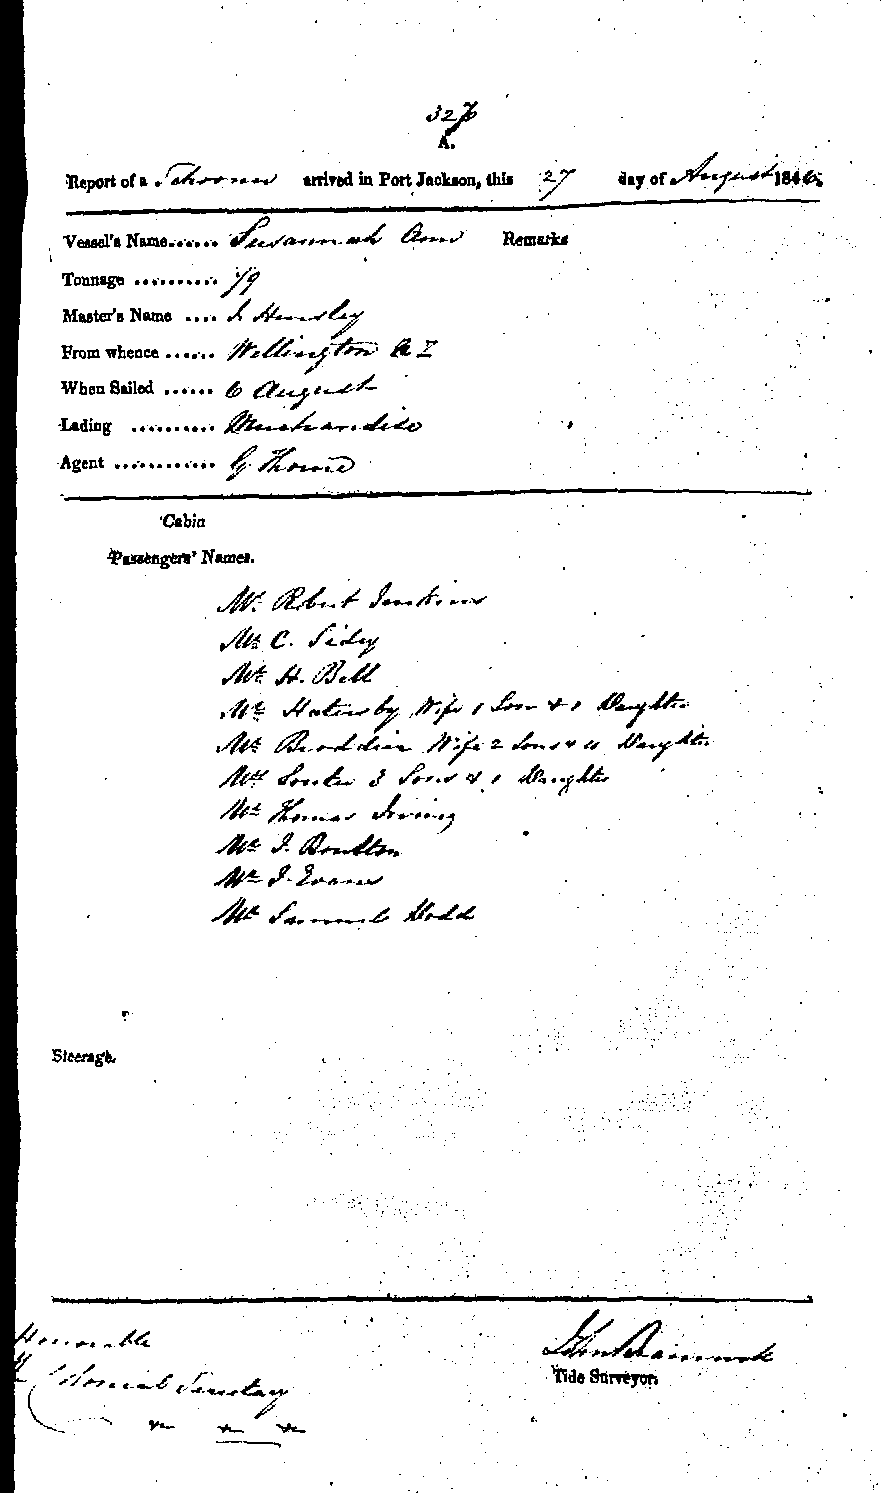 A.
Report of a Schooner arrived in Port Jackson, this 27 day of August 1846.
Vessel's Name...... Susannah Ann Remarks
Tonnage .......... 79
Master's Name .... J Hensley
From whence ...... Wellington N Z
When Sailed ...... 6 August
Lading .......... Merchandise
Agent ............ G Thorne
Cabin
Passengers' Names.
Mr. Robert Jenkins
Mr C. Sidey
Mr H. Bell
Mr Wife 1 Son & 1 Daughter
Mr Wife 2 Sons & Daughter
Mrs Souter 3 Sons & 1 Daughter
Mr Thomas Irving
Mr J. Boulton
Mr J. Evans
Mr Samuel Dodd
Steerage.
Honorable
Colonial Secretary
John
Tide Surveyor.